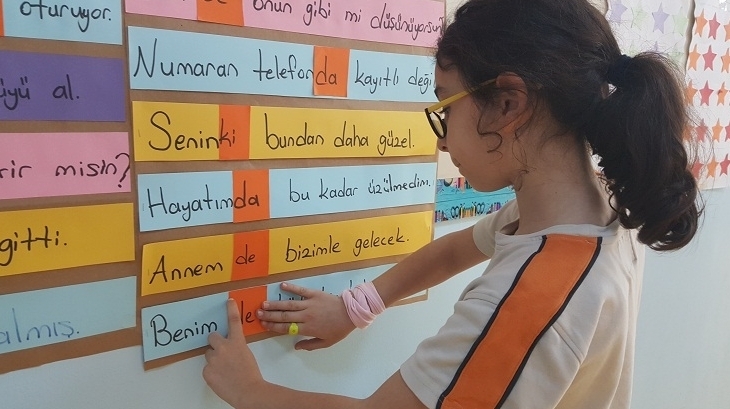 oturuyor.
üyü al.
rir misin?
gitti.
almış.
onun gibi mi düşünüyorsun
Numaran telefonda kayıtlı deği
Seninki bundan daha güzel.
Hayatımda bu kadar üzülmedim.
Annem de bizimle gelecek.
Benim